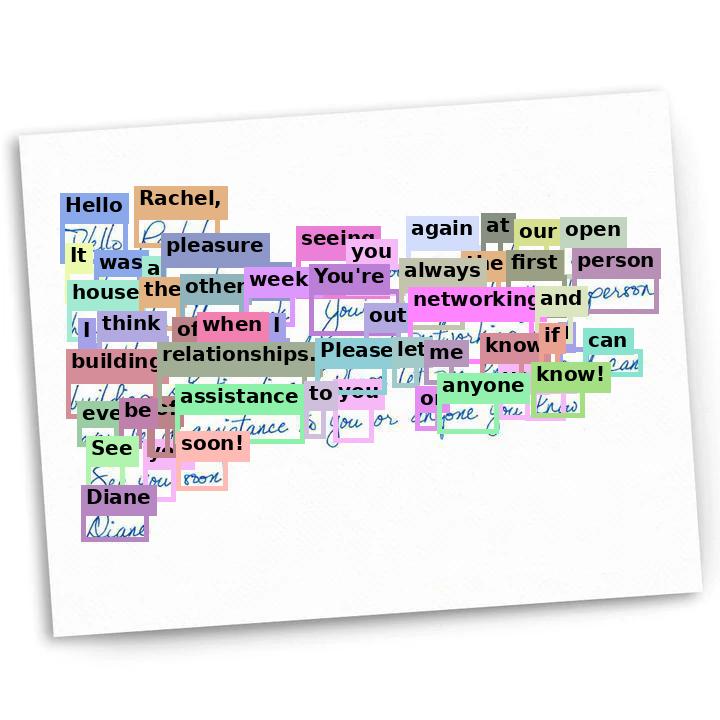 Hello Rachel,
It was a pleasure seeing you again at our open
house the other week You're always the first person
I think of when I out networking and
building relationships. Please let me know if I can
ever be assistance to you or anyone you know!
See you soon!
Diane